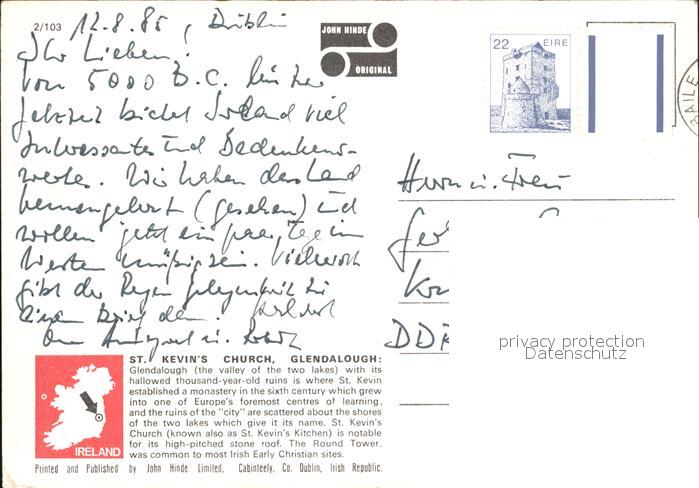 2/103
12.8.85, Dublin
Ihr Lieben!
Von 5000 B.C. bis zur
Jetztzeit bietet Irland viel
Interessantes und Bedenkens-
wertes. Wir haben das Land
(gesehen) und
wollen jetzt ein paar Tage im
Westen müßig sein. Vielleicht
gibt der Regen Gelegenheit zu
einem Brief
JOHN HINDE
ORIGINAL
22 EIRE
BAILE
Herrn u. Frau
DDR
privacy protection
Datenschutz
IRELAND
ST. KEVIN'S CHURCH, GLENDALOUGH:
Glendalough (the valley of the two lakes) with its
hallowed thousand-year-old ruins is where St. Kevin
established a monastery in the sixth century which grew
into one of Europe's foremost centres of learning,
and the ruins of the "city" are scattered about the shores
of the two lakes which give it its name. St. Kevin's
Church (known also as St. Kevin's Kitchen) is notable
for its high-pitched stone roof. The Round Tower,
was common to most Irish Early Christian sites.
Printed and Published by John Hinde Limited, Cabinteely, Co. Dublin, Irish Republic.